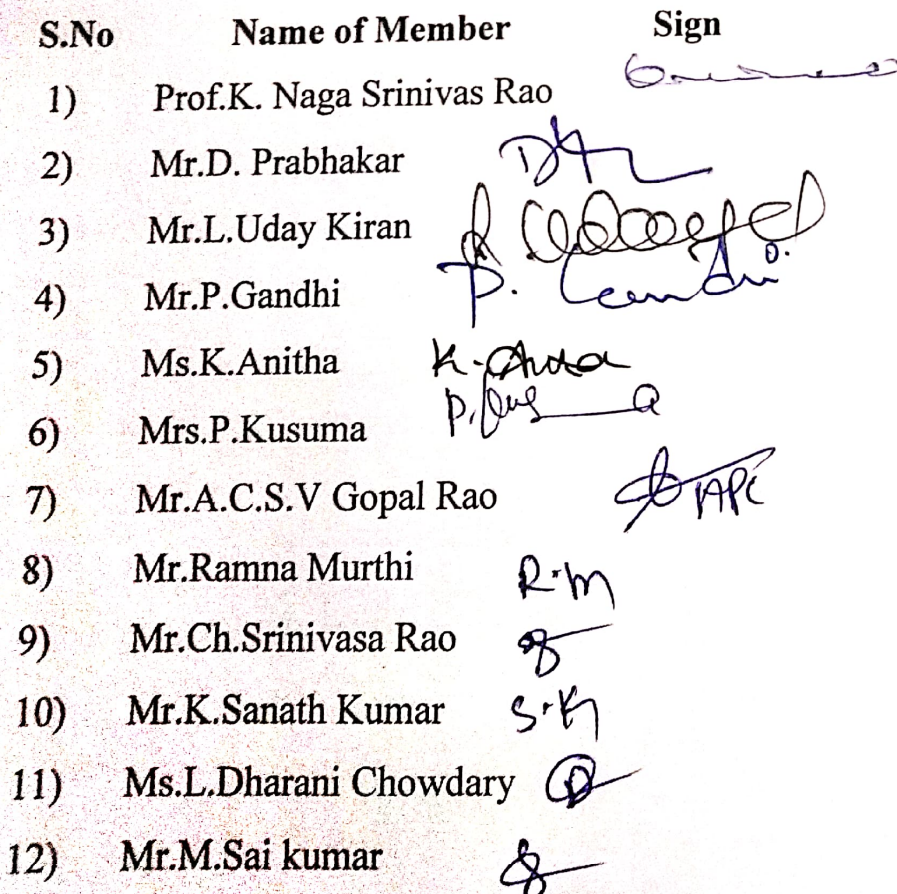 S.No Name of Member Sign
1) Prof.K. Naga Srinivas Rao
2) Mr.D. Prabhakar
3) Mr.L.Uday Kiran
4) Mr.P.Gandhi P. Gandhi
5) Ms.K.Anitha K.
6) Mrs.P.Kusuma P.
7) Mr.A.C.S.V Gopal Rao
8) Mr.Ramna Murthi R.m
9) Mr.Ch.Srinivasa Rao
10) Mr.K.Sanath Kumar S.K
11) Ms.L.Dharani Chowdary
12) Mr.M.Sai kumar